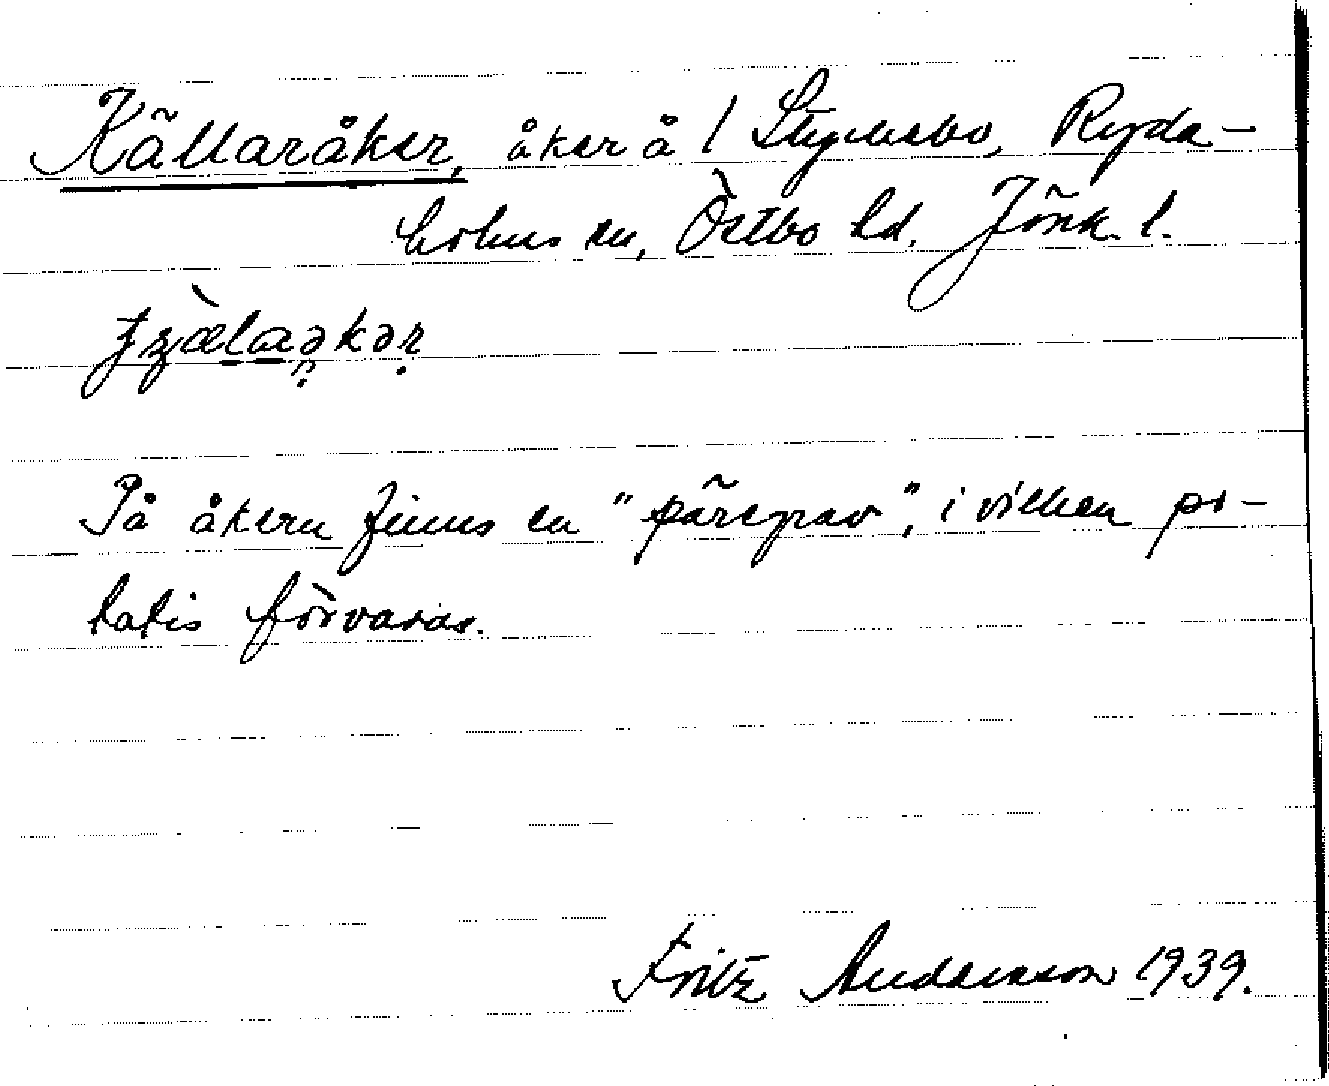 Källaråker, åker å 1 Styvesbo, Ryda-
holms sn, Östbo hd. Jönk. l.
På åkern finns en "päregrav", i vilken po-
tatis förvaras.
Fritz Andersson 1939.